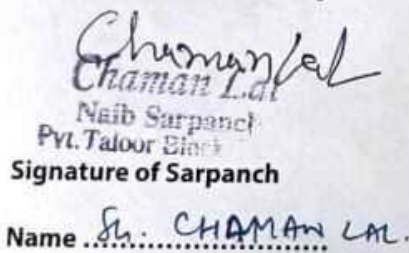 Chaman Lal
Chaman Lal
Naib Sarpanch
Pyt. Taloor Block
Signature of Sarpanch
Name ..Sh. CHAMAN LAL.